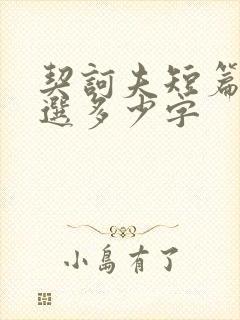 契訶夫短篇
選多少字
小島有了